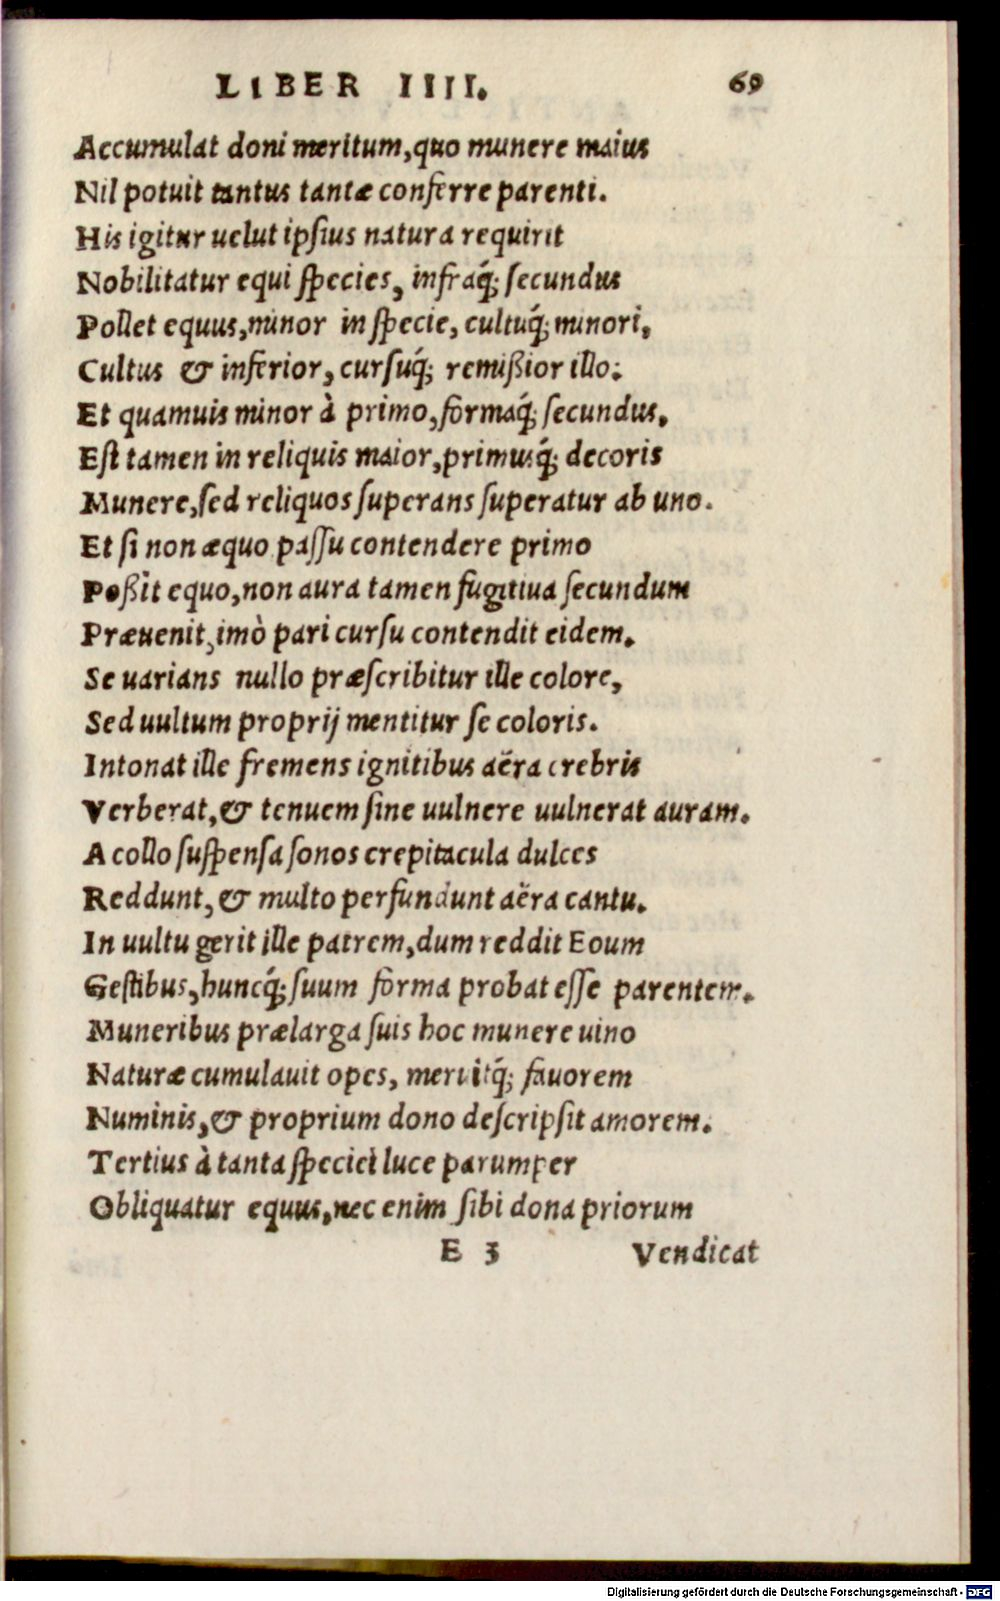 LIBER IIII. 69
Accumulat doni meritum, quo munere maius
Nil potuit tantus tantæ conferre parenti.
His igitur uelut ipſius natura requirit
Nobilitatur equi ſpecies, infraq́; ſecundus
Pollet equus, minor in ſpecie, cultuq́; minori,
Cultus & inferior, curſuq́; remißior illo:
Et quamuis minor à primo, formaq́; ſecundus,
Eſt tamen in reliquis maior, primusq́; decoris
Munere, ſed reliquos ſuperans ſuperatur ab uno.
Et ſi non æquo paſſu contendere primo
Poßit equo, non aura tamen fugitiua ſecundum
Præuenit, imò pari curſu contendit eidem.
Se uarians nullo præſcribitur ille colore,
Sed uultum proprij mentitur ſe coloris.
Intonat ille fremens ignitibus aëra crebris
Verberat, & tenuem ſine uulnere uulnerat auram.
A collo ſuſpenſa ſonos crepitacula dulces
Reddunt, & multo perfundunt aëra cantu.
In uultu gerit ille patrem, dum reddit Eoum
Geſtibus, huncq́; ſuum forma probat eſſe parentem.
Muneribus prælarga ſuis hoc munere uino
Naturæ cumulauit opes, meruitq́; fauorem
Numinis, & proprium dono deſcripſit amorem.
Tertius à tanta ſpeciei luce parumper
Obliquatur equus, nec enim ſibi dona priorum
E 3 Vendicat
Digitalisierung gefördert durch die Deutsche Forschungsgemeinschaft - DFG